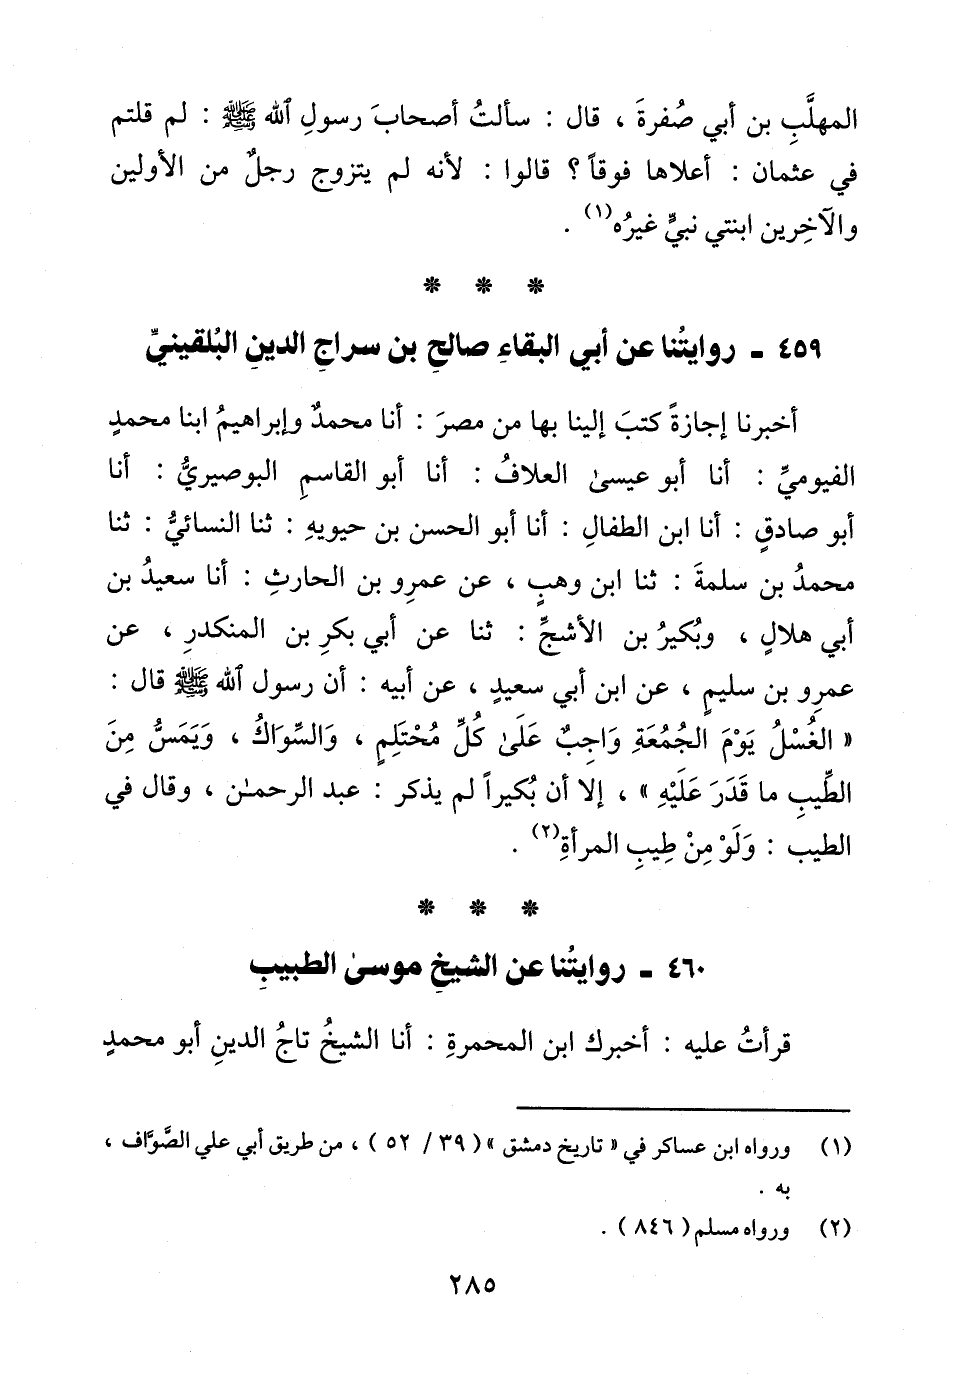 المهلَّبِ بن أبي صُفرةَ ، قال : سألتُ أصحابَ رسولِ الله ﷺ : لم قلتم
في عثمان : أعلاها فوقاً ؟ قالوا : لأنه لم يتزوج رجلٌ من الأولين
والآخِرين ابنتي نبيٍّ غيرُه(١) .
* * *
٤٥٩ ـ روايتُنا عن أبي البقاءِ صالحِ بن سراجِ الدينِ البُلقينيِّ
أخبرنا إجازةً كتبَ إلينا بها من مصرَ : أنا محمدٌ وإبراهيمُ ابنا محمدٍ
الفيوميِّ : أنا أبو عيسىٰ العلافُ : أنا أبو القاسمِ البوصيريُّ : أنا
أبو صادقٍ : أنا ابن الطفالِ : أنا أبو الحسن بن حيويهِ : ثنا النسائيُّ : ثنا
محمدُ بن سلمةَ : ثنا ابن وهبٍ ، عن عمرِو بن الحارثِ : أنا سعيدُ بن
أبي هلالٍ ، وبُكيرُ بن الأشجِّ : ثنا عن أبي بكرِ بن المنكدرِ ، عن
عمرِو بن سليمٍ ، عن ابن أبي سعيدٍ ، عن أبيه : أن رسول الله ﷺ قال :
« الغُسْلُ يَوْمَ الجُمُعَةِ وَاجِبٌ عَلَىٰ كُلِّ مُحْتَلِمٍ ، وَالسِّوَاكُ ، وَيَمَسُّ مِنَ
الطِّيبِ ما قَدَرَ عَلَيْهِ » ، إلا أن بُكيراً لم يذكر : عبد الرحمـٰن ، وقال في
الطيب : وَلَوْ مِنْ طِيبِ المرأةِ(٢) .
* * *
٤٦٠ ـ روايتُنا عن الشيخِ موسىٰ الطبيبِ
قرأتُ عليه : أخبرك ابن المحمرةِ : أنا الشيخُ تاجُ الدينِ أبو محمدٍ
(١) ورواه ابن عساكر في « تاريخ دمشق » ( ٣٩ / ٥٢ ) ، من طريق أبي علي الصَّوَّاف ،
به .
(٢) ورواه مسلم ( ٨٤٦ ) .
٢٨٥